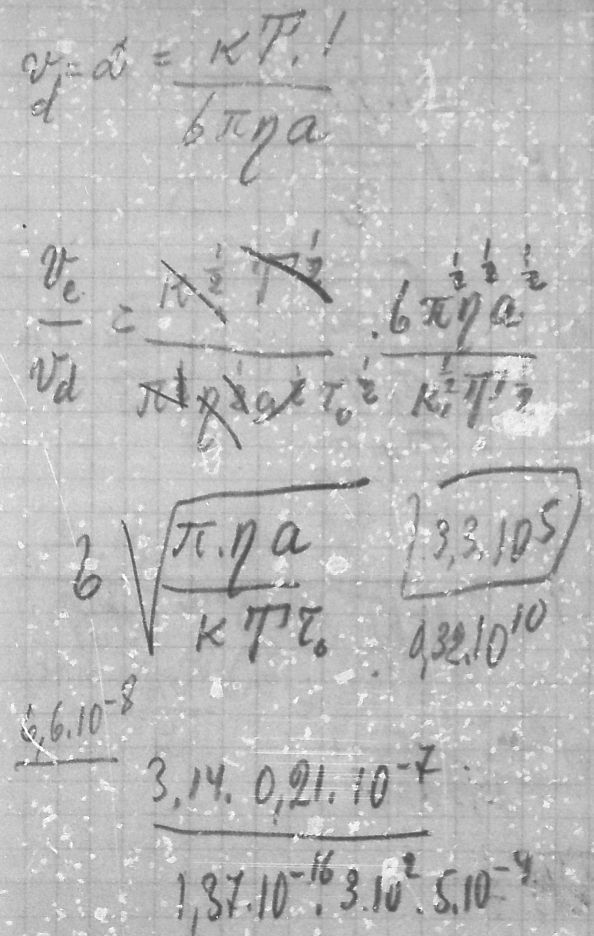 v_d = α = кT.1 / 6πηa
v_e / v_d = к^½ T^½ / π^½ η^½ a^½ τ₀^½ · 6π^½ η^½ a^½ / к^½ T^½
6 √(π.ηa / кTτ₀) 3,3.10⁵
0,32.10¹⁰
6,6.10⁻⁸
3,14. 0,21. 10⁻⁷
1,37.10⁻¹⁶. 3.10². 5.10⁻⁴